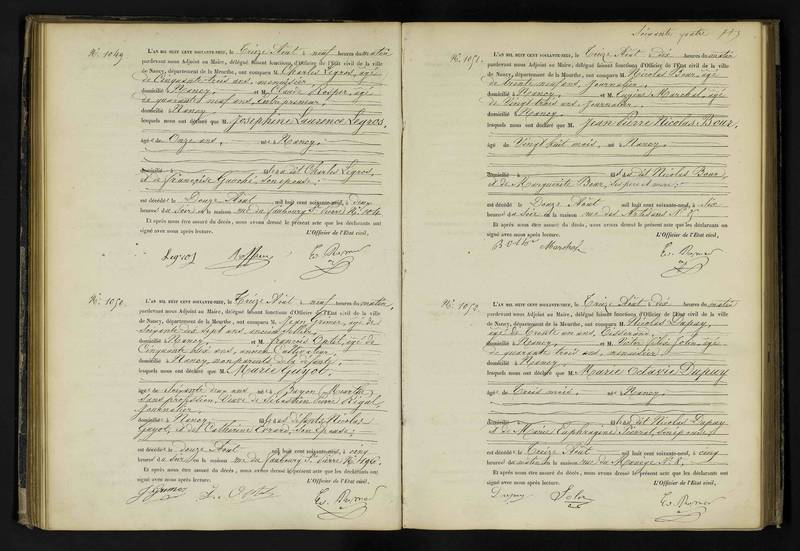 Nº. 1049
L'AN MIL HUIT CENT SOIXANTE-NEUF, le Treize Août à neuf heures du matin
pardevant nous Adjoint au Maire, délégué faisant fonctions d'Officier de l'Etat civil de la ville
de Nancy, département de la Meurthe, ont comparu M. Charles Legros, âgé
de Cinquante trois ans, menuisier
domicilié à Nancy et M. âgé
de quarante neuf ans, entrepreneur
domicilié à Nancy
lesquels nous ont déclaré que M. Joséphine Laurence Legros,
âgé de Onze ans, né à Nancy,
domicilié à fils du dit Charles Legros,
et de Françoise Gauché, son épouse;
est décédé le Douze Août mil huit cent soixante-neuf, à deux
heures du soir en la maison rue du faubourg St. Pierre Nº 104
Et après nous être assuré du décès, nous avons dressé le présent acte que les déclarants ont
signé avec nous après lecture. L'Officier de l'Etat civil,
Legros
Nº. 1050
L'AN MIL HUIT CENT SOIXANTE-NEUF, le Treize Août à neuf heures du matin,
pardevant nous Adjoint au Maire, délégué faisant fonctions d'Officier de l'Etat civil de la ville
de Nancy, département de la Meurthe, ont comparu M. Jean Grimer, âgé de
Soixante dix sept ans, ancien
domicilié à Nancy et M. François âgé de
Cinquante deux ans, ancien Cultivateur,
domicilié à Nancy, non parents de la défunte,
lesquels nous ont déclaré que M. Marie Guyot,
âgé de Soixante deux ans né à Bayon (Meurthe)
sans profession, Veuve de Sébastien Pierre Rigal,
journalier
domicilié à Nancy fils des défunts Nicolas
Guyot, et de Catherine Evrard, son épouse;
est décédé le douze Août mil huit cent soixante-neuf, à cinq
heures du soir en la maison rue du faubourg St. Pierre Nº
Et après nous être assuré du décès, nous avons dressé le présent acte que les déclarants ont
signé avec nous après lecture. L'Officier de l'Etat civil,
Soixante quatre
Nº. 1051
L'AN MIL HUIT CENT SOIXANTE-NEUF, le Treize Août à dix heures du matin
pardevant nous Adjoint au Maire, délégué faisant fonctions d'Officier de l'Etat civil de la ville
de Nancy, département de la Meurthe, ont comparu M. Nicolas Bour, âgé
de trente neuf ans, journalier,
domicilié à Nancy et M. Eugène Marchal, âgé
de Vingt trois ans, journalier
domicilié à Nancy
lesquels nous ont déclaré que M. Jean Pierre Nicolas Bour,
âgé de Vingt huit mois, né à Nancy,
domicilié à fils du dit Nicolas Bour,
et de Marguerite Bour, ses père et mère;
est décédé le Douze Août mil huit cent soixante-neuf, à six
heures du soir en la maison rue des Artisans Nº
Et après nous être assuré du décès, nous avons dressé le présent acte que les déclarants ont
signé avec nous après lecture. L'Officier de l'Etat civil,
Marchal
Nº. 1052
L'AN MIL HUIT CENT SOIXANTE-NEUF, le Treize Août à dix heures du matin
pardevant nous Adjoint au Maire, délégué faisant fonctions d'Officier de l'Etat civil de la ville
de Nancy, département de la Meurthe, ont comparu M. Nicolas Dupuy,
âgé de trente un ans, Tisserand
domicilié à Nancy et M. Victor âgé
de quarante trois ans, menuisier
domicilié à Nancy
lesquels nous ont déclaré que M. Marie Octavie Dupuy
âgé de Trois mois, né à Nancy,
domicilié à fils du dit Nicolas Dupuy
et de Marie Euphrasine Pierrot, son épouse;
est décédé le Treize Août mil huit cent soixante-neuf, à cinq
heures du matin en la maison rue du Manège Nº 8,
Et après nous être assuré du décès, nous avons dressé le présent acte que les déclarants ont
signé avec nous après lecture. L'Officier de l'Etat civil,
Dupuy